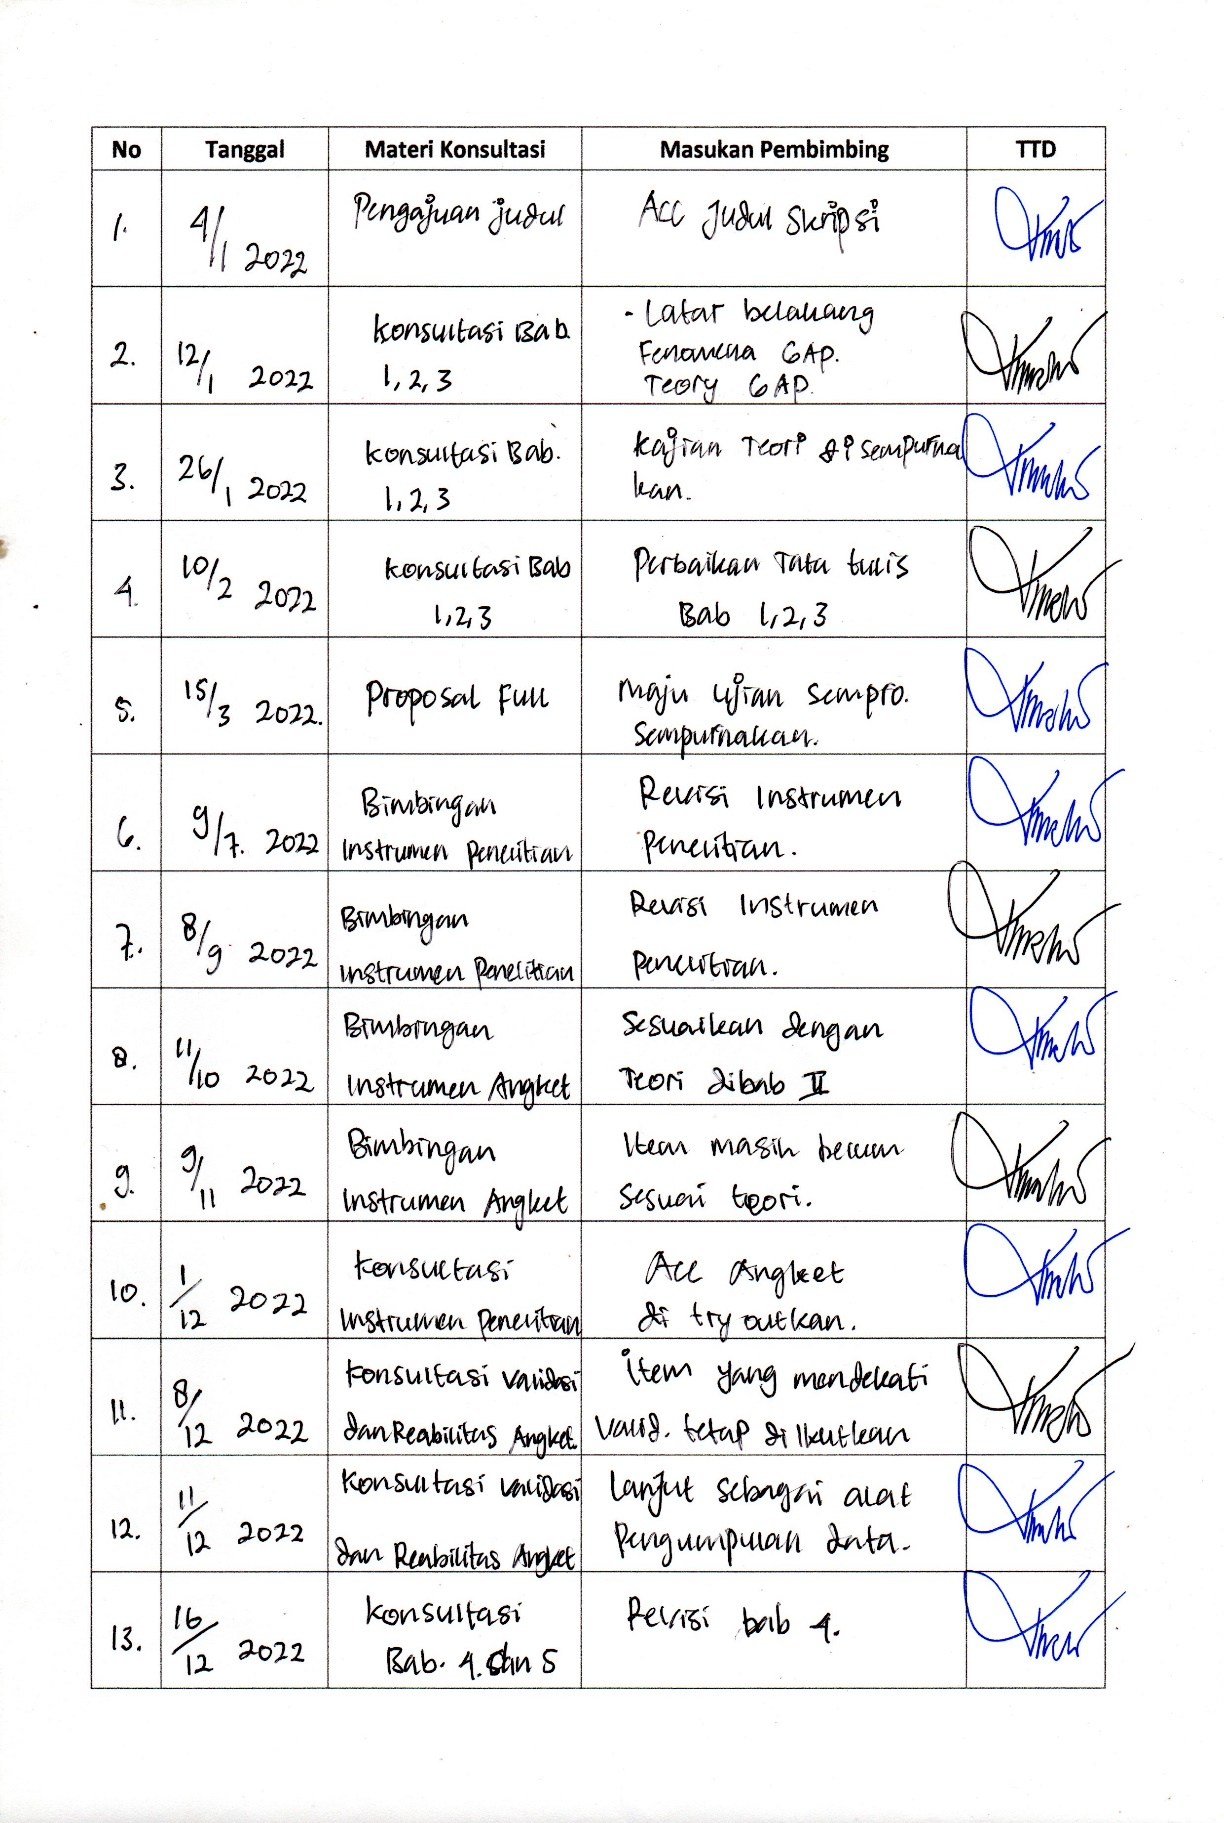 No Tanggal Materi Konsultasi Masukan Pembimbing TTD
1. 4/1 2022 Pengajuan judul Acc Judul Skripsi
2. 12/1 2022 Konsultasi Bab 1, 2, 3 - Latar belakang
Fenomena GAP.
Teory GAP.
3. 26/1 2022 Konsultasi Bab. 1, 2, 3 Kajian Teori di sempurna
kan.
4. 10/2 2022 Konsultasi Bab 1, 2, 3 Perbaikan Tata tulis
Bab 1, 2, 3
5. 15/3 2022. Proposal Full Maju Ujian Sempro.
Sempurnakan.
6. 9/7. 2022 Bimbingan
Instrumen Penelitian
Revisi Instrumen
Penelitian.
7. 8/9 2022 Bimbingan
Instrumen Penelitian
Revisi Instrumen
Penelitian.
8. 11/10 2022 Bimbingan
Instrumen Angket
Sesuaikan dengan
Teori dibab II
9. 9/11 2022 Bimbingan
Instrumen Angket
Item masih belum
Sesuai teori.
10. 1/12 2022 Konsultasi
Instrumen Penelitian
Acc Angket
di try outkan.
11. 8/12 2022 Konsultasi Validasi
dan Reabilitas Angket.
item yang mendekati
Valid. tetap di Ikutkan
12. 11/12 2022 Konsultasi Validasi
dan Reabilitas Angket
Lanjut sebagai alat
Pengumpulan data.
13. 16/12 2022 Konsultasi
Bab. 4. dan 5
Revisi bab 4.